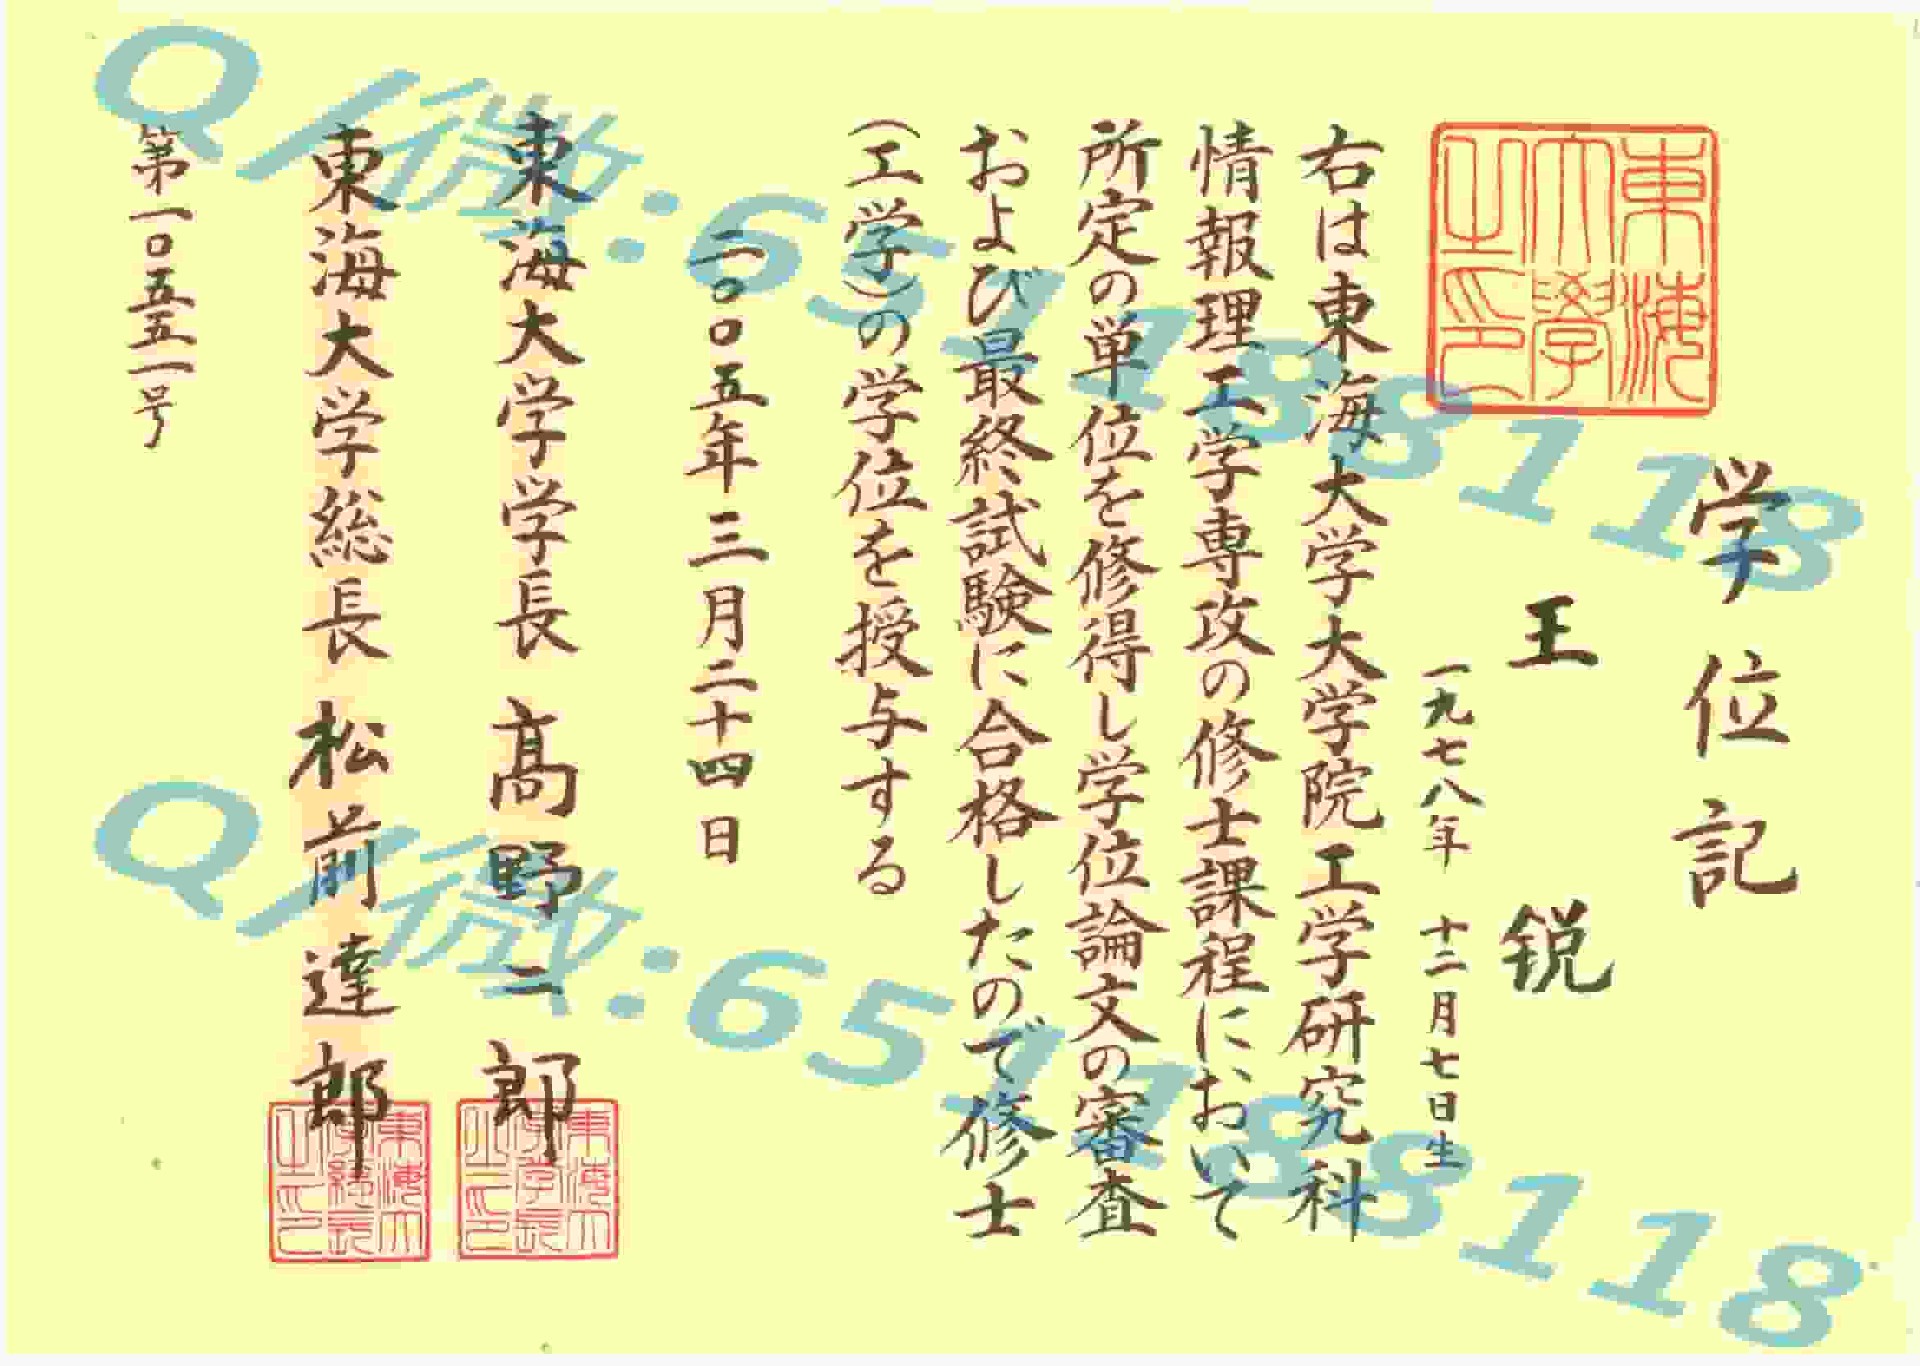 学位記
東海大學之印
王 锐
一九七八年 十二月七日生
右は東海大学大学院工学研究科
情報理工学専攻の修士課程において
所定の単位を修得し学位論文の審査
および最終試験に合格したので修士
(工学)の学位を授与する
二〇〇五年三月二十四日
東海大学学長 髙野二郎
東海大学総長 松前達郎
第一〇五五一号
Q/微:651188118
Q/微:651188118